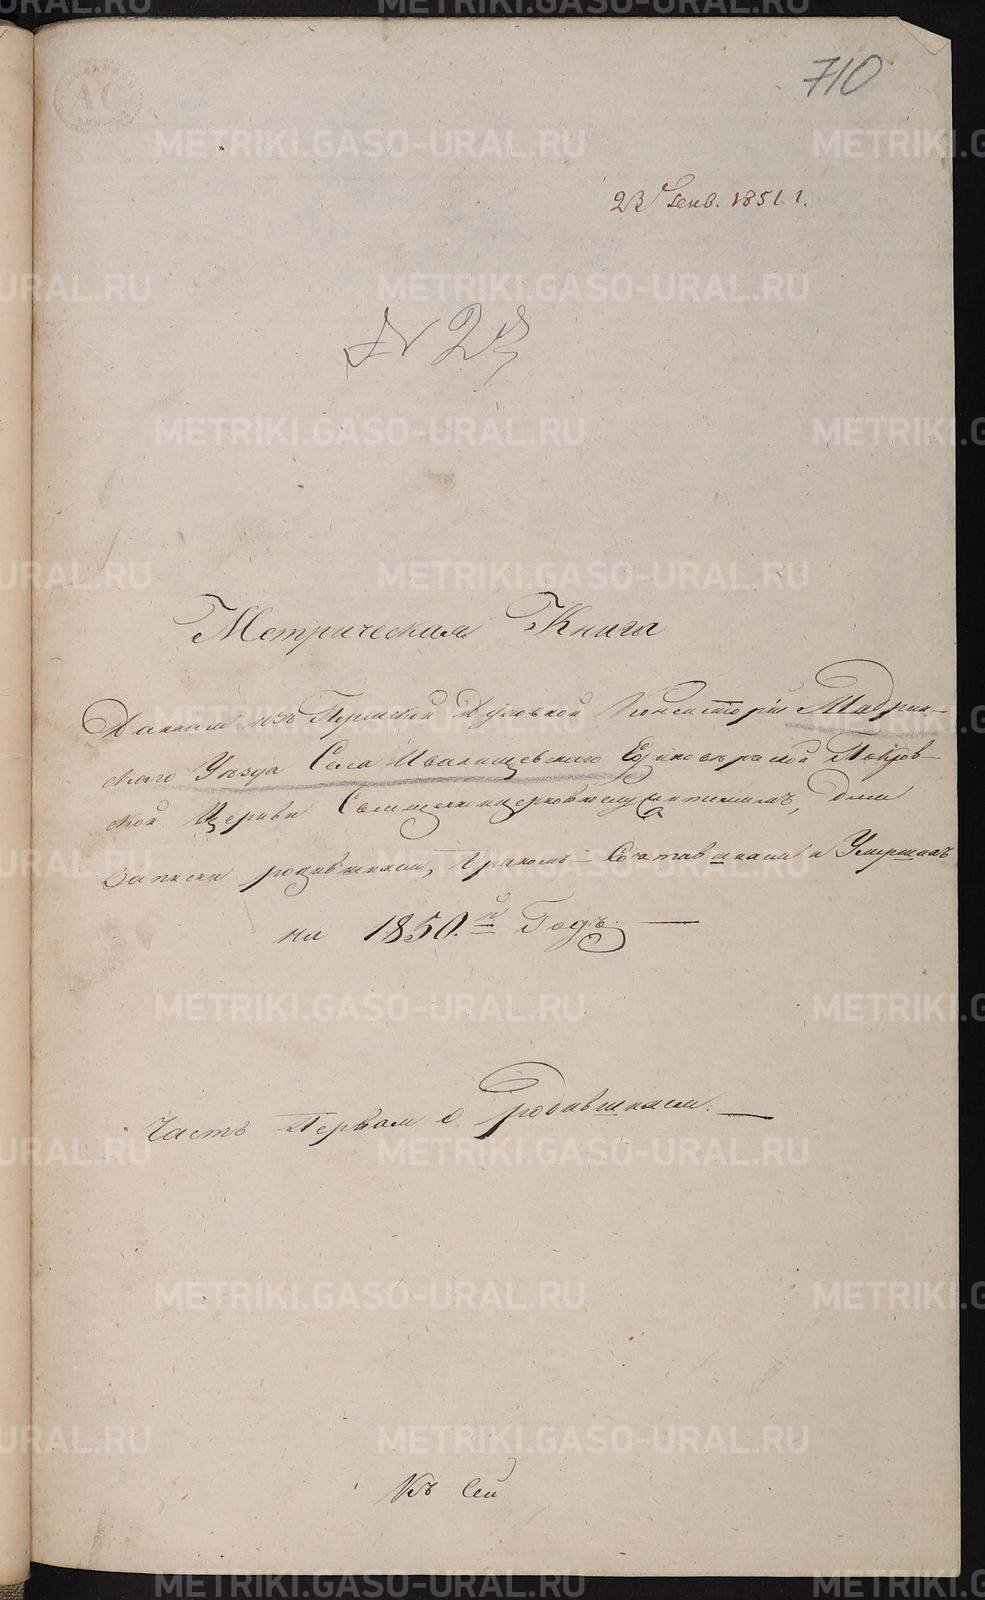 710
23 Генв. 1851 г.
№ 27
Метрическая Книга
Данная изъ Пермской Духовной Консисторіи Шадрин-
скаго Уѣзда Села Иванищевскаго Единовѣрской Покров-
ской Церкви Священноцерковнослужителямъ, Для
Записки родившихся, Бракомъ Сочетавшихся и Умершихъ
на 1850.й Годъ. —
Часть Первая о родившихся. —
Къ Сей
METRIKI.GASO-URAL.RU